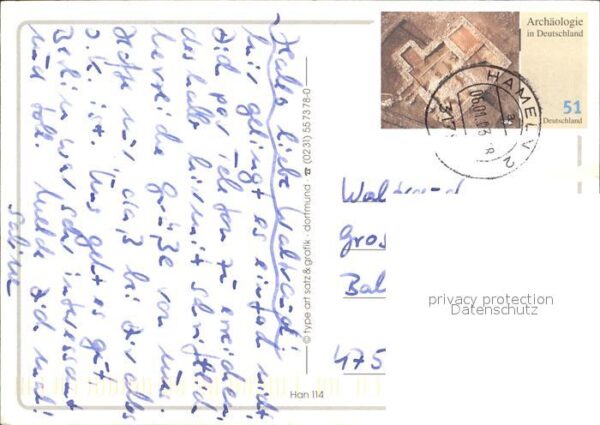 Hallo liebe Waltraud!
mir gelingt es einfach nicht
dich per Telefon zu erreichen,
deshalb hiermit schriftlich
herzliche Grüße von uns.
Hoffe nur, daß bei dir alles
o.k. ist. Uns geht es gut
Berlin war sehr interessant
und toll. Melde dich mal!
Sabine
© type art satz & grafik · dortmund · ☎ (0231) 557378-0
Han 114
Archäologie
in Deutschland
51
Deutschland
HAMELN 2
06.01.03
317
Gros
Bal
475
privacy protection
Datenschutz